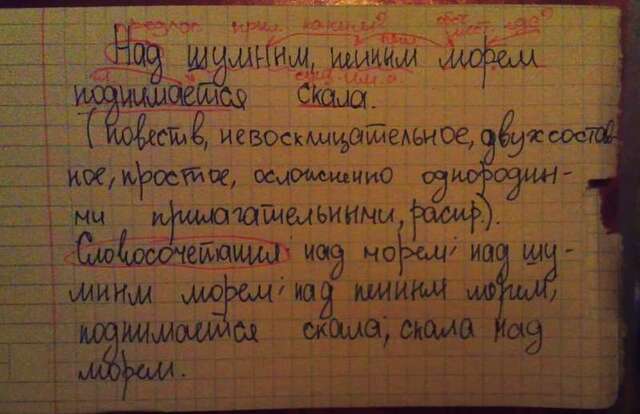 предлог прил. каким? прил. сущ. где?
Над шумным, пенным морем
гл. сущ. им.п
поднимается скала.
(повеств, невосклицательное, двухсостав-
ное, простое, осложненно однородны-
ми прилагательными, распр.).
Словосочетания: над морем; над шу-
мным морем; над пенным морем,
поднимается скала; скала над
морем.